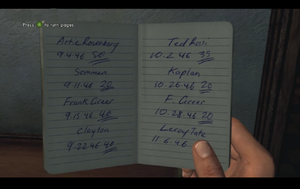 Press to turn pages
Artie Rosenberg
9-4-46 50
Sammen
9-11-46 20
Frank Greer
9-15-46 40
Clayton
9-22-46 40
Ted Rossi
10-2-46 35
Kaplan
10-26-46 20
F. Greer
10-28-46 20
Leroy Tate
11-6-46